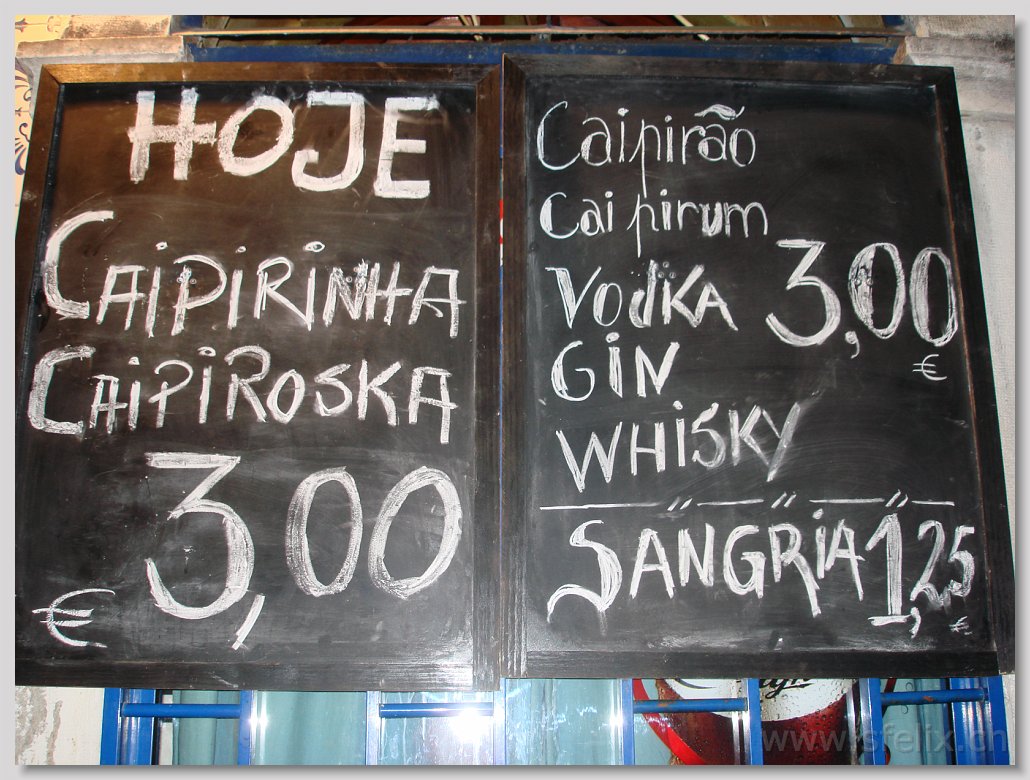 HOJE
CAIPIRINHA
CAIPIROSKA
3,00
€
Caipirão
Caipirum
VODKA 3,00
€
GIN
WHISKY
SANGRIA 1,25
€
www.sfelix.ch